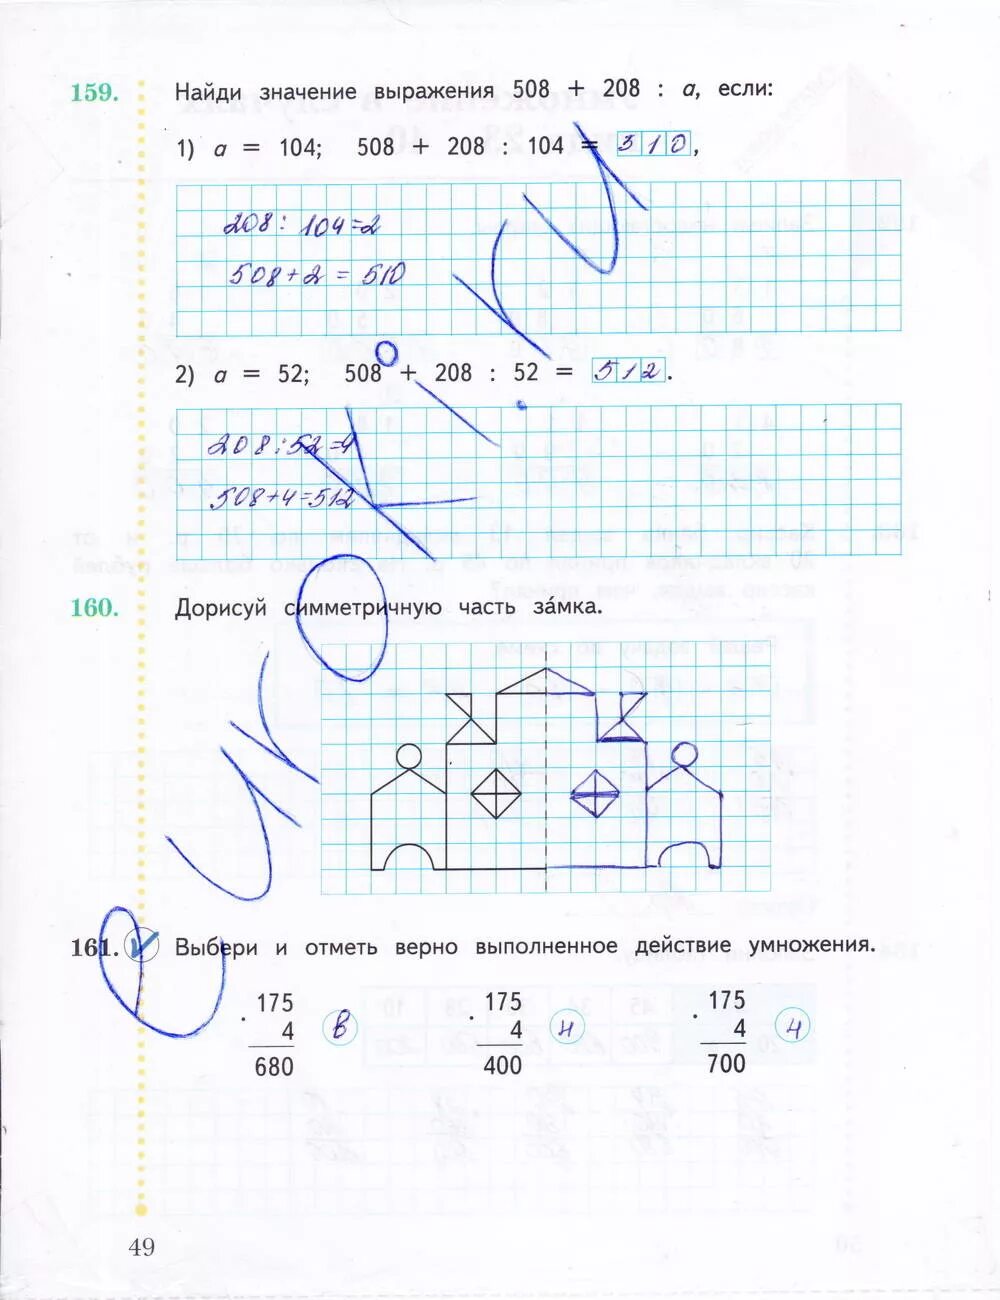 159. Найди значение выражения 508 + 208 : a, если:
1) a = 104; 508 + 208 : 104 = 310,
208 : 104=2
508+2 = 510
2) a = 52; 508 + 208 : 52 = 512.
208:52=4
508+4=512
160. Дорисуй симметричную часть за́мка.
161. Выбери и отметь верно выполненное действие умножения.
175 175 175
· 4 в · 4 н · 4 ч
680 400 700
49